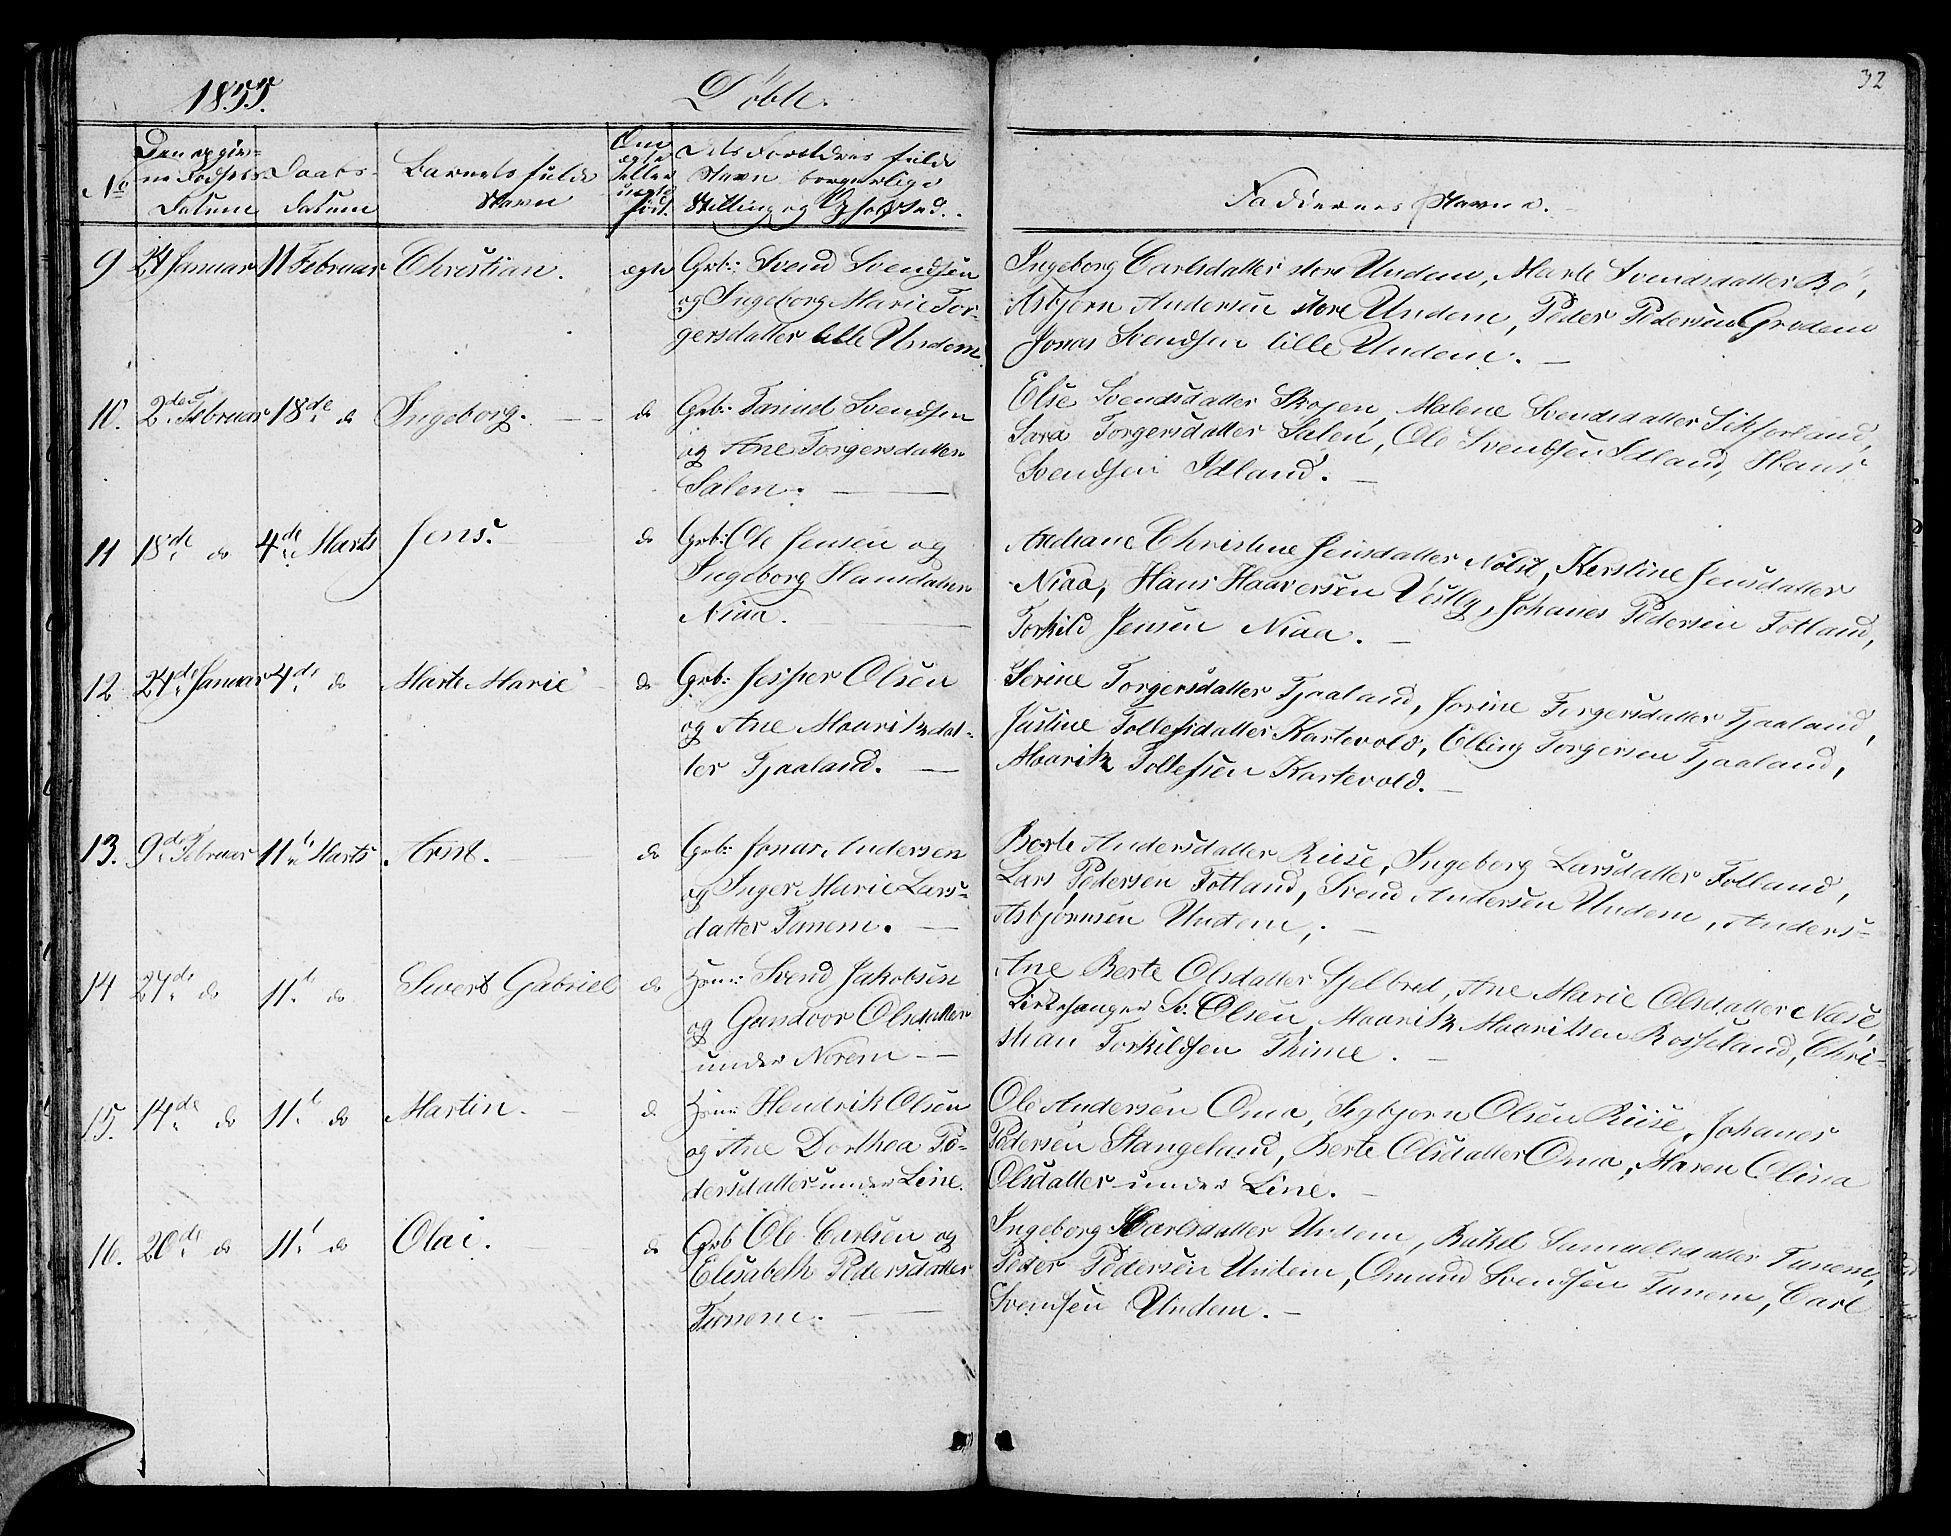 1855. Döbte. 32
No
Den opgivne Födsels Datum
Daabs-Datum
Barnets fulde Navn
Om ægte eller uægte född.
Dets Forældres fulde Navn borgerlige Stilling og Opholdsted.
Faddernes Navne.
9 24 Januar 11 Februar Christian. ægte Grb: Svend Svendsen
og Ingeborg Marie Tor-
gersdatter lille Undem
Ingeborg Carlsdatter store Undem, Marte Svendsdatter Bö,
Asbjørn Andersen store Undem, Peder Pedersen Grødem
Jonas Svendsen lille Undem. —
10. 2den Februar 18de do Ingeborg. — do Grb: Svendsen
og Ane Torgersdatter
Salen. —
Else Svendsdatter Skogen, Malene Svendsdatter
Sara Torgersdatter Salen, Ole Svendsen Idland, Hans
Svendsen Idland. —
11 18de do 4de Marts Jens. do Grb: Ole Jensen og
Ingeborg Hansdatter
Niaa.
Andreane Christine Jensdatter Kerstine Jensdatter
Niaa, Hans Haaversen Vestly, Johanes Pedersen Fotland,
Torkild Jensen Niaa. —
12 24de Januar 4de do Marte Marie do Grb: Jesper Olsen
og Ane Mauritzdat-
ter Tjaaland. —
Serine Torgersdatter Tjaaland, Jorine Torgersdatter Tjaaland,
Justine Tollefsdatter Kartevold, Elling Torgersen Tjaaland,
Mauritz Tollefsen Kartevold. —
13. 9de Februar 11t Marts Arnt. do Grb: Jonas Andersen
og Inger Marie Lars-
datter Tunem. —
Berte Andersdatter Riise, Ingeborg Larsdatter Fotland,
Lars Pedersen Fotland, Svend Andersen Undem, Anders
Asbjørnsen Undem, —
14 27de do 11t do Sivert Gabriel do Huusm: Svend Jakobsen
og Gundvor Olsdatter
under Norem —
Ane Berte Olsdatter Ane Marie Olsdatter Næse,
Kirkesanger Olsen, Mauritz Mauritsen Rosseland, Chri-
stian Torkildsen Thime. —
15. 14de do 11t do Martin. — do Huusm: Hendrik Olsen
og Ane Dorthea Pe-
dersdatter under Line.
Ole Andersen Oma, Sigbjørn Olsen Riise, Johanes
Pedersen Stangeland, Berte Olsdatter Oma, Maren Olina
Olsdatter under Line. —
16. 20de do 11t do Olai. do Grb Ole Carlsen og
Elisabeth Pedersdatter
Tunem. —
Ingeborg Carlsdatter Undem, Rakel Samuelsdatter Tunem,
Peder Pedersen Undem, Omund Svendsen Tunem, Carl
Svendsen Undem. —